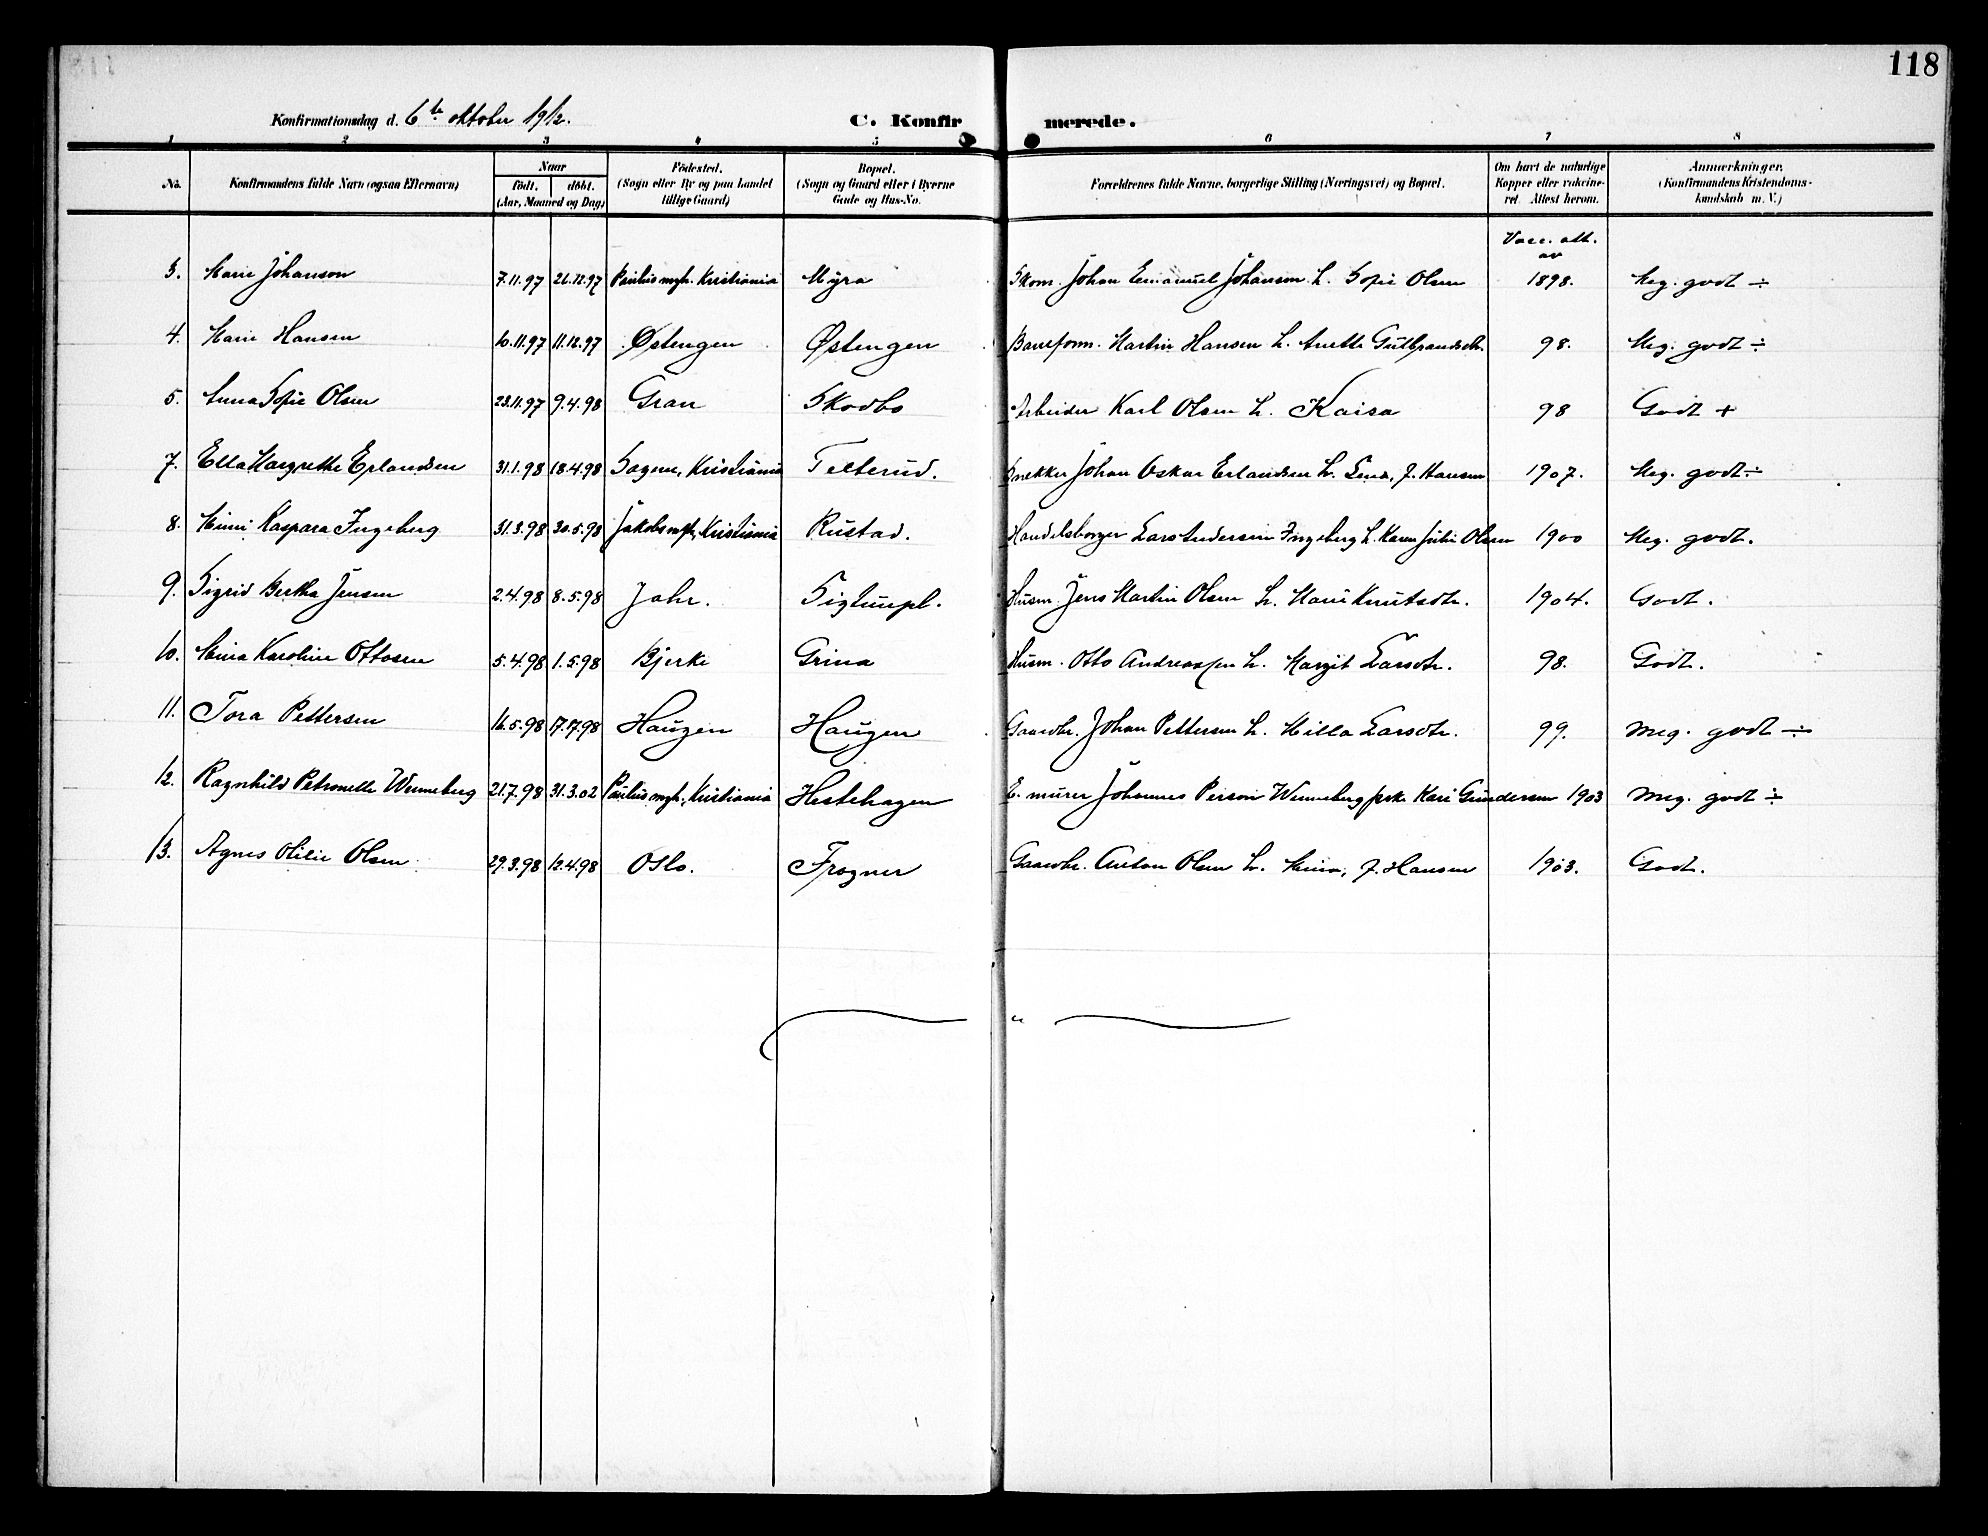 118
Konfirmationsdag d. 6te oktober 1912. C. Konfirmerede.
1 2 3 4 5 6 7 8
No. Konfirmandens fulde Navn (ogsaa Efternavn) Naar födt. döbt. (Aar, Maaned og Dag) Födested. (Sogn eller By og paa Landet tillige Gaard) Bopæl. (Sogn og Gaard eller i Byerne Gade og Hus-No. Forældrenes fulde Navne, borgerlige Stilling (Næringsvei) og Bopæl. Om havt de naturlige Kopper eller vakcineret. Attest herom. Anmærkninger. (Konfirmandens Kristendomskundskab m. V.)
Vacc. att. av
3. Marie Johanson 7.11.97 26.12.97 Paulus mgh. Kristiania Myra Skom. Johan Emanuel Johanson h. Sofie Olsen 1898. Meg. godt ÷
4. Marie Hansen 10.11.97 11.12.97 Østengen Østengen Baneform. Martin Hansen h. Anette Gulbrandsdtr. 98. Meg. godt ÷
5. Anna Sofie Olsen 23.11.97 9.4.98 Gran Skodbo Arbeider Karl Olsen h. Kaisa 98 Godt +
7. Ella Margrethe Erlandsen 31.1.98 18.4.98 Sagene, Kristiania Telterud. Snekker Johan Oskar Erlandsen h. Lina, f. Hansen 1907. Meg. godt ÷
8. Mimi Kaspara Ingeberg 31.3.98 30.5.98 Jakobs mgh, Kristiania Rustad. Handelsborger Lars Andersen Ingeberg h. Karen Julie Olsen 1900 Meg. godt.
9. Sigrid Bertha Jensen 2.4.98 8.5.98 Jahr. Sigtunpl. Husm. Jens Martin Olsen h. Marie Knutsdtr. 1904. Godt.
10. Mina Karoline Ottosen 5.4.98 1.5.98 Bjerke Grina Husm. Otto Andreassen h. Margit Larsdtr. 98. Godt.
11. Tora Pettersen 16.5.98 17.7.98 Haugen Haugen Gaardbr. Johan Pettersen h. Milla Larsdtr. 99. Meg. godt ÷
12. Ragnhild Petronelle Wenneberg 21.7.98 31.3.02 Paulus mgh., Kristiania Hestehagen E. murer Johannes Person Wenneberg frsk. Kari Gundersen 1903 Meg. godt ÷
13. Agnes Otilie Olsen 29.3.98 12.4.98 Oslo. Frogner Gaardbr. Anton Olsen h. Mina, f. Hansen 1903. Godt.